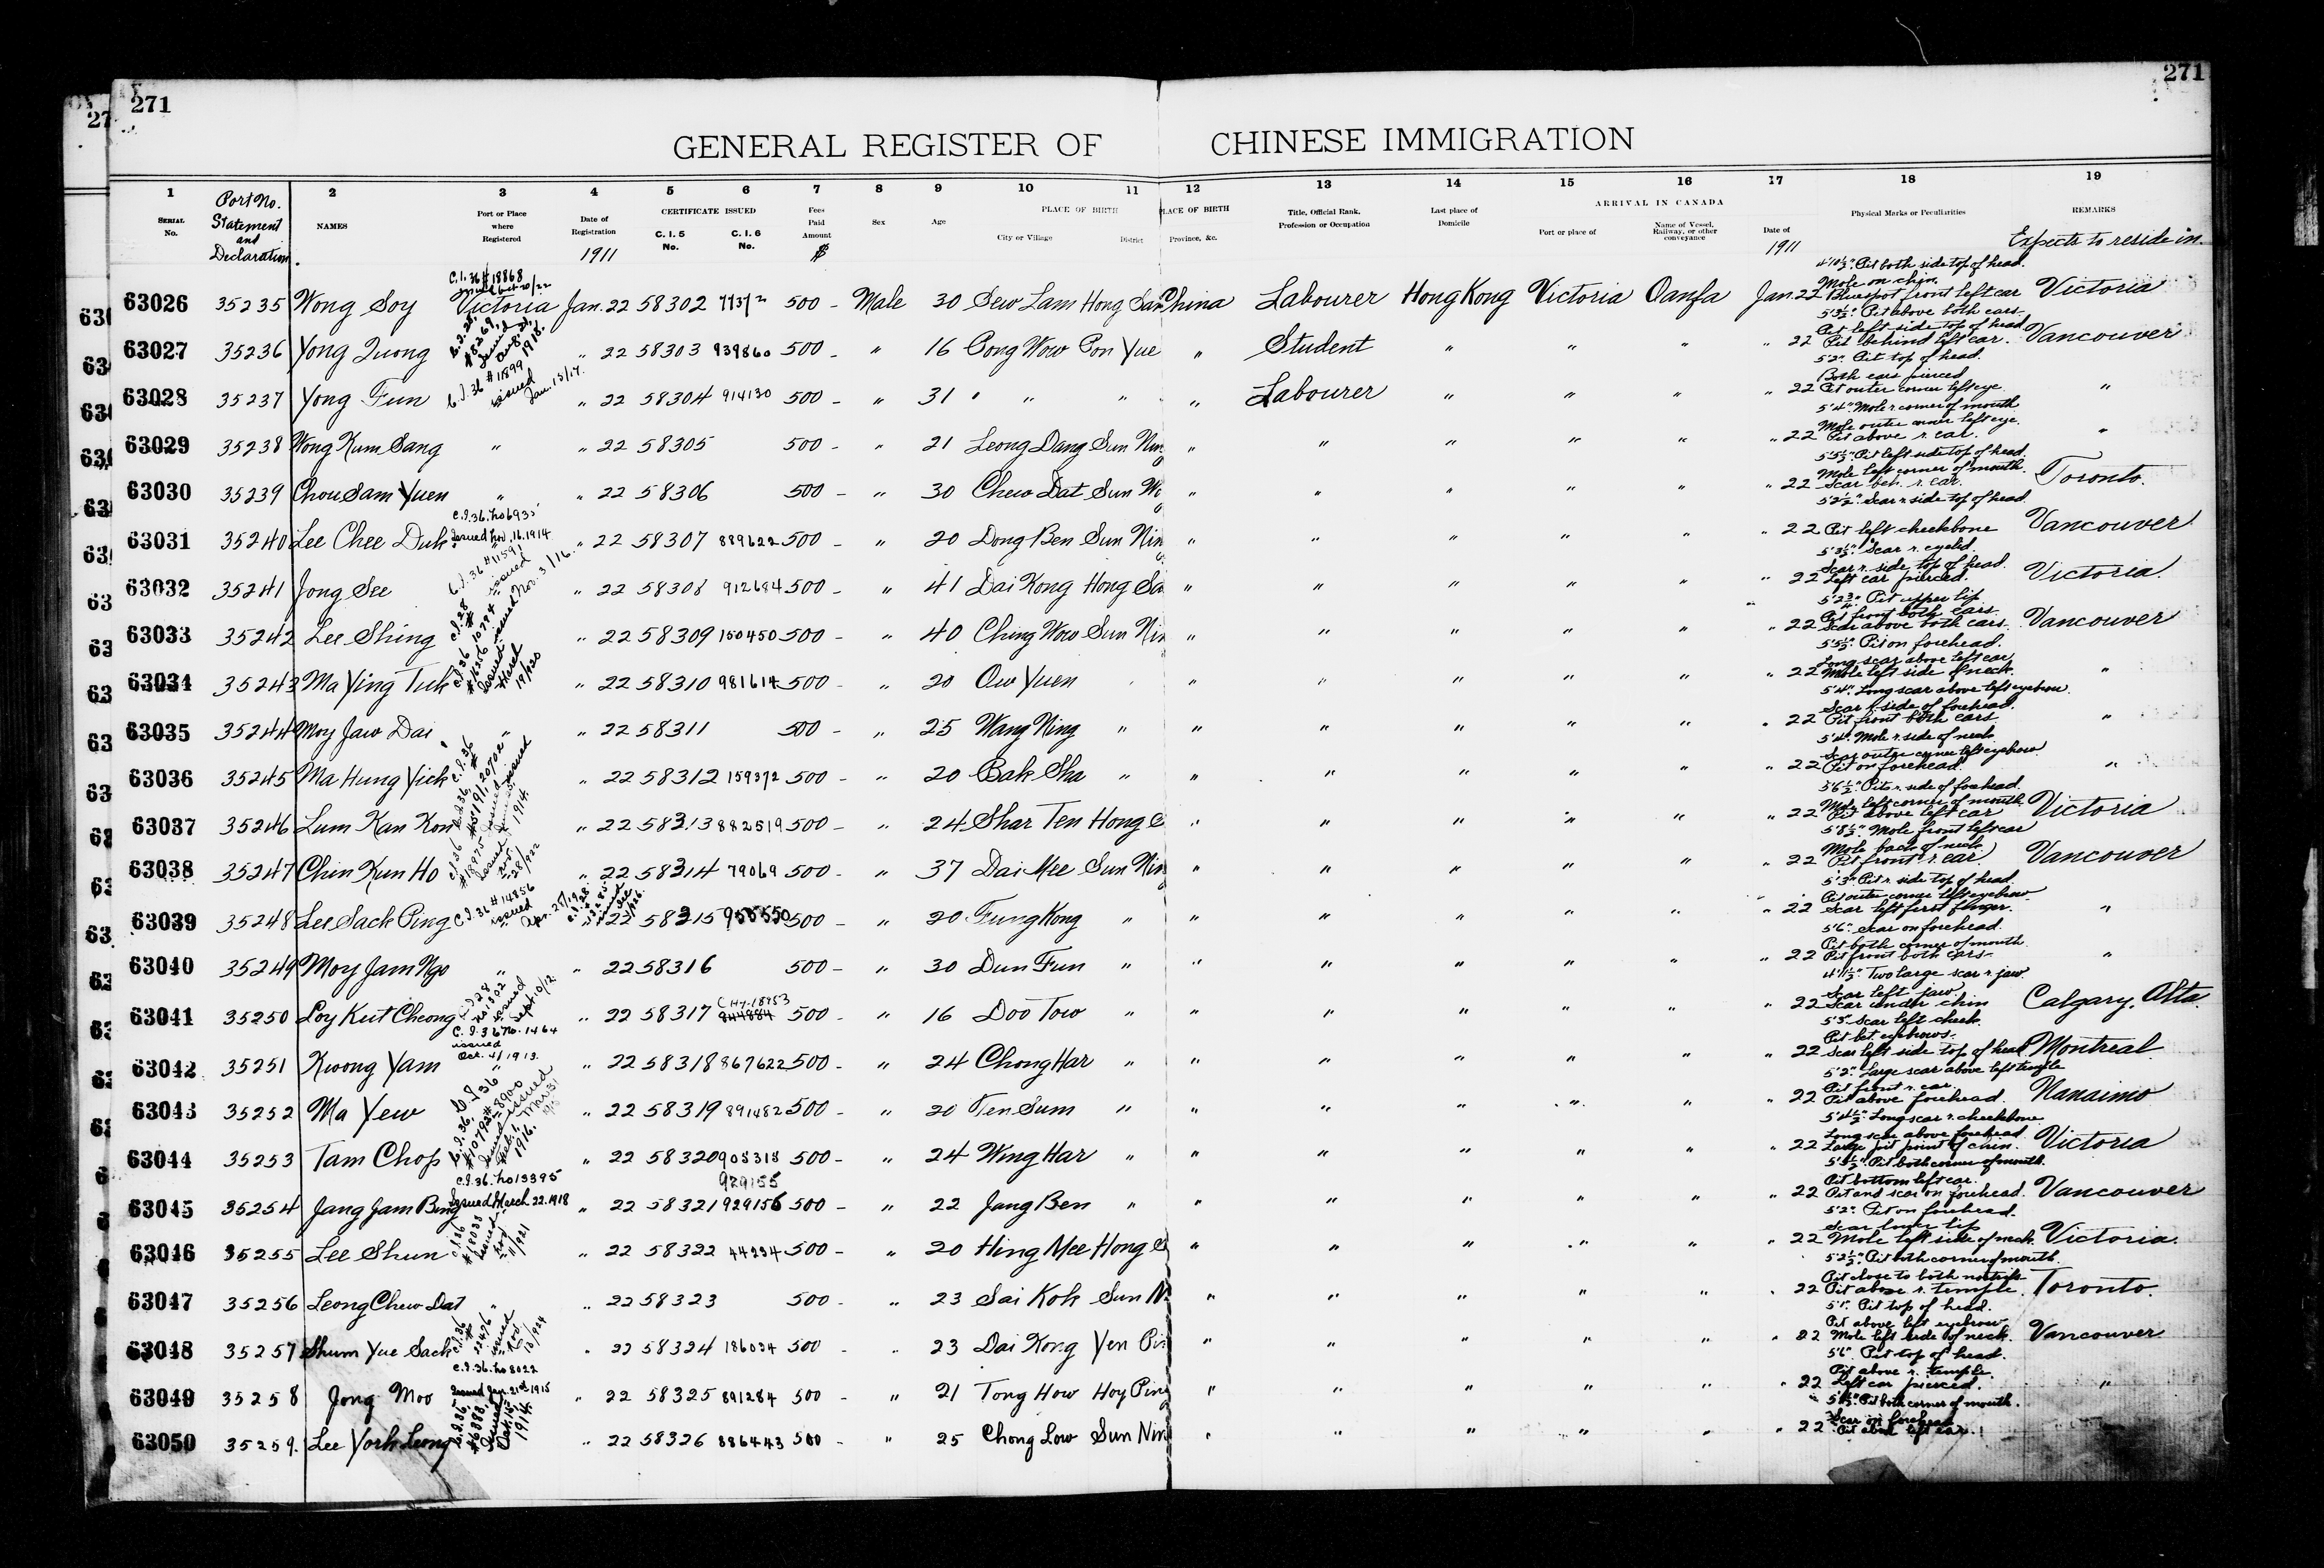 271
271
GENERAL REGISTER OF CHINESE IMMIGRATION
1 Port No. Statement and Declaration. 2 3 4 5 6 7 8 9 10 11 12 13 14 15 16 17 18 19
SERIAL No. NAMES Port or Place where Registered Date of Registration CERTIFICATE ISSUED C. I. 5 No. C. I. 6 No. Fees Paid Amount Sex Age PLACE OF BIRTH City or Village District PLACE OF BIRTH Province, &c. Title, Official Rank, Profession or Occupation Last place of Domicile ARRIVAL IN CANADA Port or place of Name of Vessel, Railway, or other conveyance Date of Physical Marks or Peculiarities REMARKS
1911 $ 1911 Expects to reside in.
C.I.36 # 18868
4'10½" Pit both side top of head.
Mole on chin.
63026 35235 Wong Soy Victoria Jan. 22 58302 500 - Male 30 Sew Lam Hong San China Labourer Hong Kong Victoria Oanfa Jan. 22 Blue spot front left ear Victoria
5'3½" Pit above both ears.
Pit left side top of head
63027 35236 Yong Quong " 22 58303 939860 500 - " 16 Cong Wow Pon Yue " Student " " " " 22 Pit behind left ear. Vancouver
5'2" Pit top of head.
Both ears pierced
63028 35237 Yong Fun C.I.36 # 11899 issued Jan. 13/17. " 22 58304 914130 500 - " 31 " " " " Labourer " " " " 22 Pit outer corner left eye "
5'4" Mole r. corner of mouth
Mole outer corner left eye.
63029 35238 Wong Kum Sang " " 22 58305 500 - " 21 Leong Dang Sun Nin " " " " " " 22 Pit above r. ear. "
5'5½" Pit left side top of head.
Mole left corner of mouth.
63030 35239 Chou Sam Yuen " " 22 58306 500 - " 30 Chew Dat Sun W " " " " " " 22 Scar beh. r. ear. Toronto.
5'2½" Scar r. side top of head.
C.I.36. No 6935 Issued Nov. 16. 1914
63031 35240 Lee Chee Duk " 22 58307 889622 500 - " 20 Dong Ben Sun Nin " " " " " " 22 Pit left cheekbone Vancouver
5'3½" Scar r. eyelid.
Scar r. side top of head.
63032 35241 Jong See C.I.36 # 11591 issued Nov. 3/16. " 22 58308 912684 500 - " 41 Dai Kong Hong Sa " " " " " " 22 Left ear pierced. Victoria.
5'2¾" Pit upper lip
Pit front both ears
63033 35242 Lee Shing " 22 58309 150450 500 - " 40 Ching Wow Sun Nin " " " " " " 22 Scar above both ears. Vancouver
5'5½" Pit on forehead.
Long scar above left ear
63034 35243 Ma Ying Tuk " 22 58310 981614 500 - " 20 Ow Yuen " " " " " " 22 Mole left side of neck. "
5'4" Long scar above left eyebrow.
Scar r. side of forehead.
63035 35244 Moy Jaw Dai " " 22 58311 500 - " 25 Wang Ning " " " " " " " 22 Pit front both ears "
5'4" Mole r. side of neck
Scar outer corner left eyebrow
63036 35245 Ma Hung Yick " 22 58312 159372 500 - " 20 Bak Sha " " " " " " " 22 Pit on forehead. "
5'6½" Pits r. side of forehead.
Mole left corner of mouth
63037 35246 Lum Kan Kon " 22 58313 882519 500 - " 24 Shar Ten Hong " " " " " " 22 Pit above left ear Victoria
5'8½" Mole front left ear
Mole back of neck.
63038 35247 Chin Kun Ho " 22 58314 79069 500 - " 37 Dai Mee Sun Nin " " " " " " 22 Pit front r. ear Vancouver
5'3" Pit r. side top of head.
Pit outer corner left eyebrow
63039 35248 Lee Sack Ping C.I.36 # 14856 issued Apr. 25/19 22 58315 955550 500 - " 20 Fung Kong " " " " " " " 22 Scar left first finger. "
5'6" Scar on forehead.
Pit both corner of mouth
63040 35249 Moy Jam Ngo " " 22 58316 500 - " 30 Dun Fun " " " " " " " 22 Pit front both ears "
4'11½" Two large scar r. jaw
Scar left jaw.
63041 35250 Loy Kut Cheong C.I.28 No 1302 issued Sept. 10/12 " 22 58317 844884 500 - " 16 Doo Tow " " " " " " " 22 Scar under chin Calgary. Alta.
5'3" Scar left cheek
C.I.36 No. 1464 issued Oct. 4/1913.
Pit bet. eyebrows.
63042 35251 Kwong Yam " 22 58318 867622 500 - " 24 Chong Har " " " " " " " 22 Scar left side top of head Montreal
5'2" Large scar above left temple
Pit front r. ear.
63043 35252 Ma Yew " 22 58319 891482 500 - " 20 Ten Sum " " " " " " " 22 Pit above forehead. Nanaimo
5'4½" Long scar r. cheekbone
Long scar above forehead
63044 35253 Tam Chop " 22 58320 908318 500 - " 24 Wing Har " " " " " " " 22 Large pit point of chin. Victoria
5'3½" Pit both corner of mouth.
C.I.36. No 13395 929155
Pit bottom left ear.
63045 35254 Jang Jam Bing Issued March 22. 1918 " 22 58321 929156 500 - " 22 Jang Ben " " " " " " " 22 Pit and scar on forehead. Vancouver
5'2" Pit on forehead.
Scar lower lip
63046 35255 Lee Shun " 22 58322 44234 500 - " 20 Hing Mee Hong " " " " " " 22 Mole left side of neck. Victoria.
5'2½" Pit both corner of mouth.
Pit close to both nostrils
63047 35256 Leong Chew Dat " " 22 58323 500 - " 23 Sai Kok Sun N " " " " " " 22 Pit above r. temple. Toronto.
5'1" Pit top of head.
Pit above left eyebrow
63048 35257 Shum Yue Sack " 22 58324 186034 500 " 23 Dai Kong Yen Pin " " " " " " 22 Mole left side of neck. Vancouver
5'6" Pit top of head.
C.I.36. No 8022 Issued Jan. 21st 1915
Pit above r. temple.
63049 35258 Jong Moo " 22 58325 891284 500 - " 21 Tong How Hoy Ping " " " " " " 22 Left ear pierced. "
Pit both corner of mouth.
Scar on forehead
63050 35259. Lee York Leong " 22 58326 886443 500 - " 25 Chong Low Sun Nin " " " " " " 22 Pit above left ear.